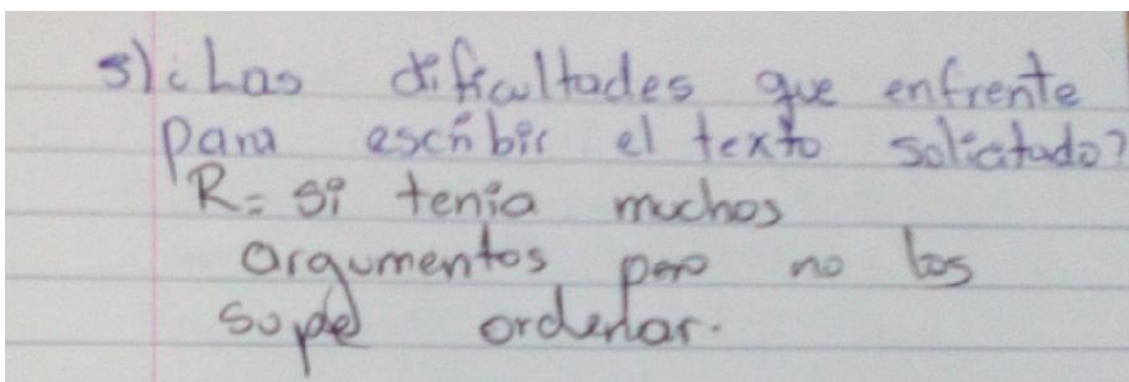 5) ¿Las dificultades que enfrente
para escribir el texto solicitado?
R= si tenia muchos
argumentos pero no los
supe ordenar.